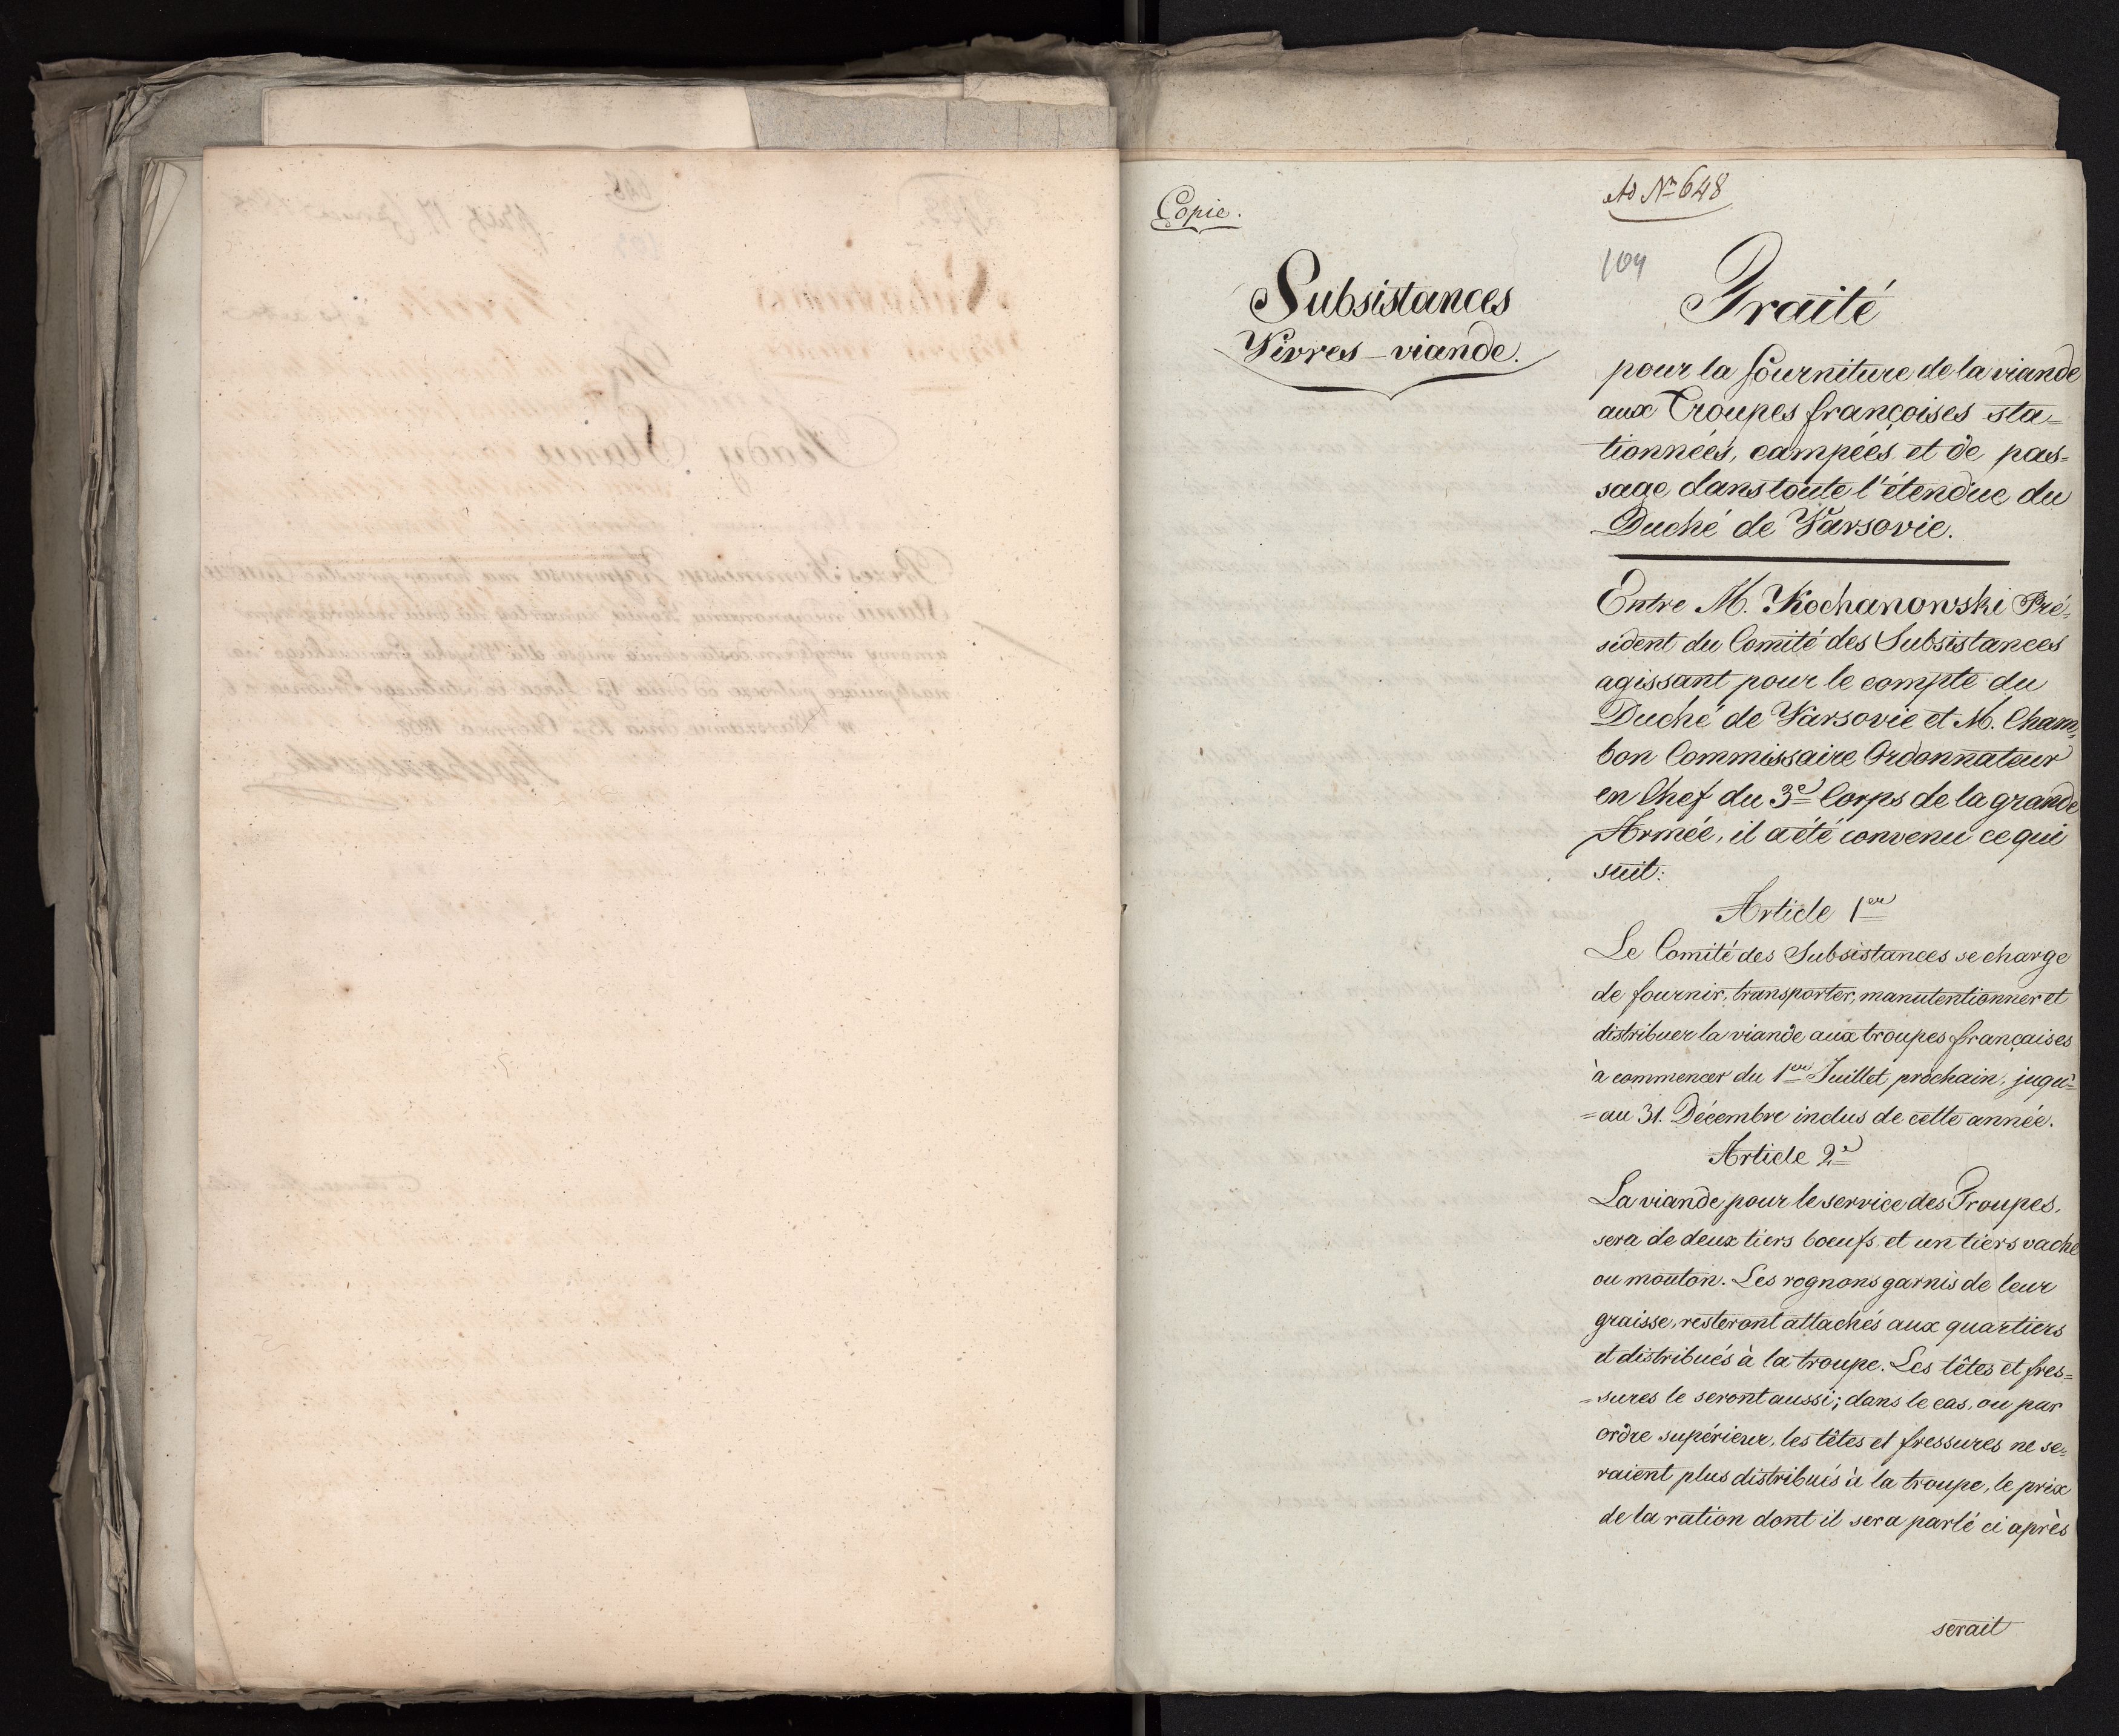 Copie.
Ad Nr 648
104
Subsistances
Vivres-viande.
Traité
pour la fourniture de la viande
aux Troupes françoises sta=
tionnées, campées et de pas=
sage dans toute l'étendue du
Duché de Varsovie.
Entre M. Kochanowski Pré=
sident du Comité des Subsistances
agissant pour le compte du
Duché de Varsovie et M. Cham=
bon Commissaire Ordonnateur
en Chef du 3e Corps de la grande
Armée, il a été convenu ce qui
suit:
Article 1er
Le Comité des Subsistances se charge
de fournir, transporter, manutentionner et
distribuer la viande aux troupes françaises
à commencer du 1er Juillet prochain, juqu'=
=au 31. Décembre inclus de cette année.
Article 2e
La viande pour le service des Troupes,
sera de deux tiers boeufs et un tiers vache
ou mouton. Les rognons garnis de leur
graisse, resteront attachés aux quartiers
et distribués à la troupe. Les têtes et fres=
=sures le seront aussi; dans le cas, ou par
ordre supérieur, les têtes et fressures ne se=
raient plus distribués à la troupe, le prix
de la ration dont il sera parlé ci après
serait